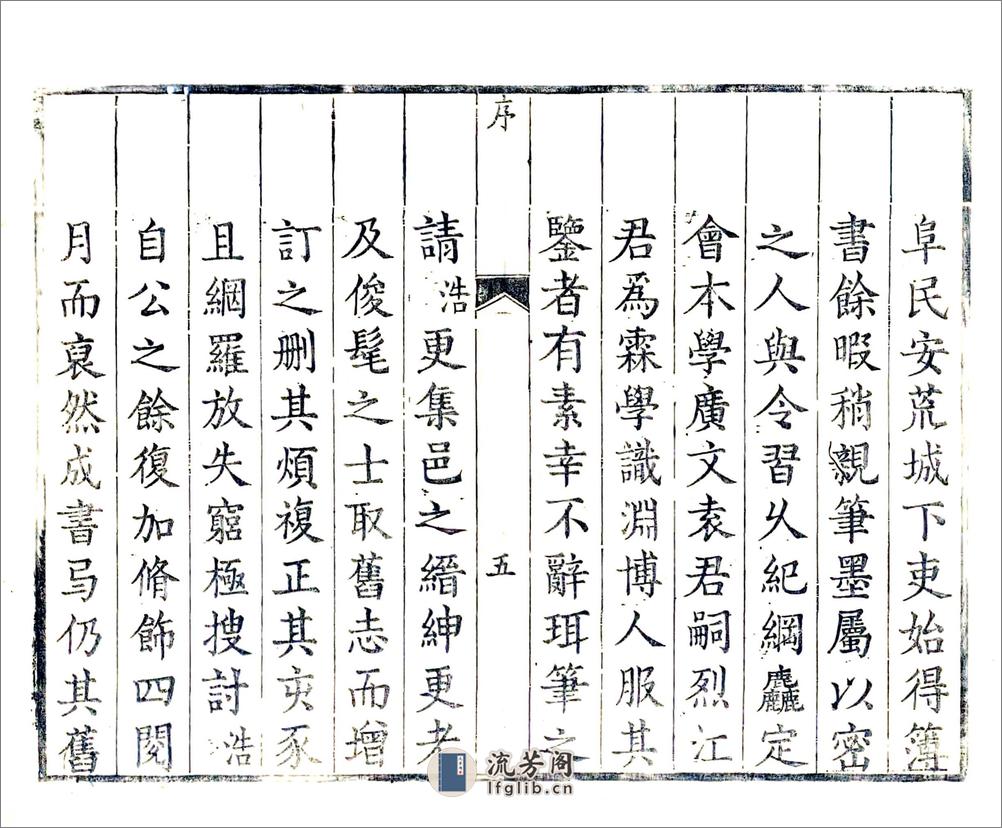 阜民安荒城下吏始得簿
書餘暇稍親筆墨屬以密
之人與令習乆紀綱麤定
會本學廣文袁君嗣烈江
君爲霖學識淵博人服其
鑒者有素幸不辭珥筆之
序
五
請浩更集邑之縉紳更老
及俊髦之士取舊志而增
訂之删其煩複正其亥豕
且網羅放失窮極搜討浩
自公之餘復加脩飾四閱
月而裒然成書焉仍其舊
流芳阁
lfglib.cn